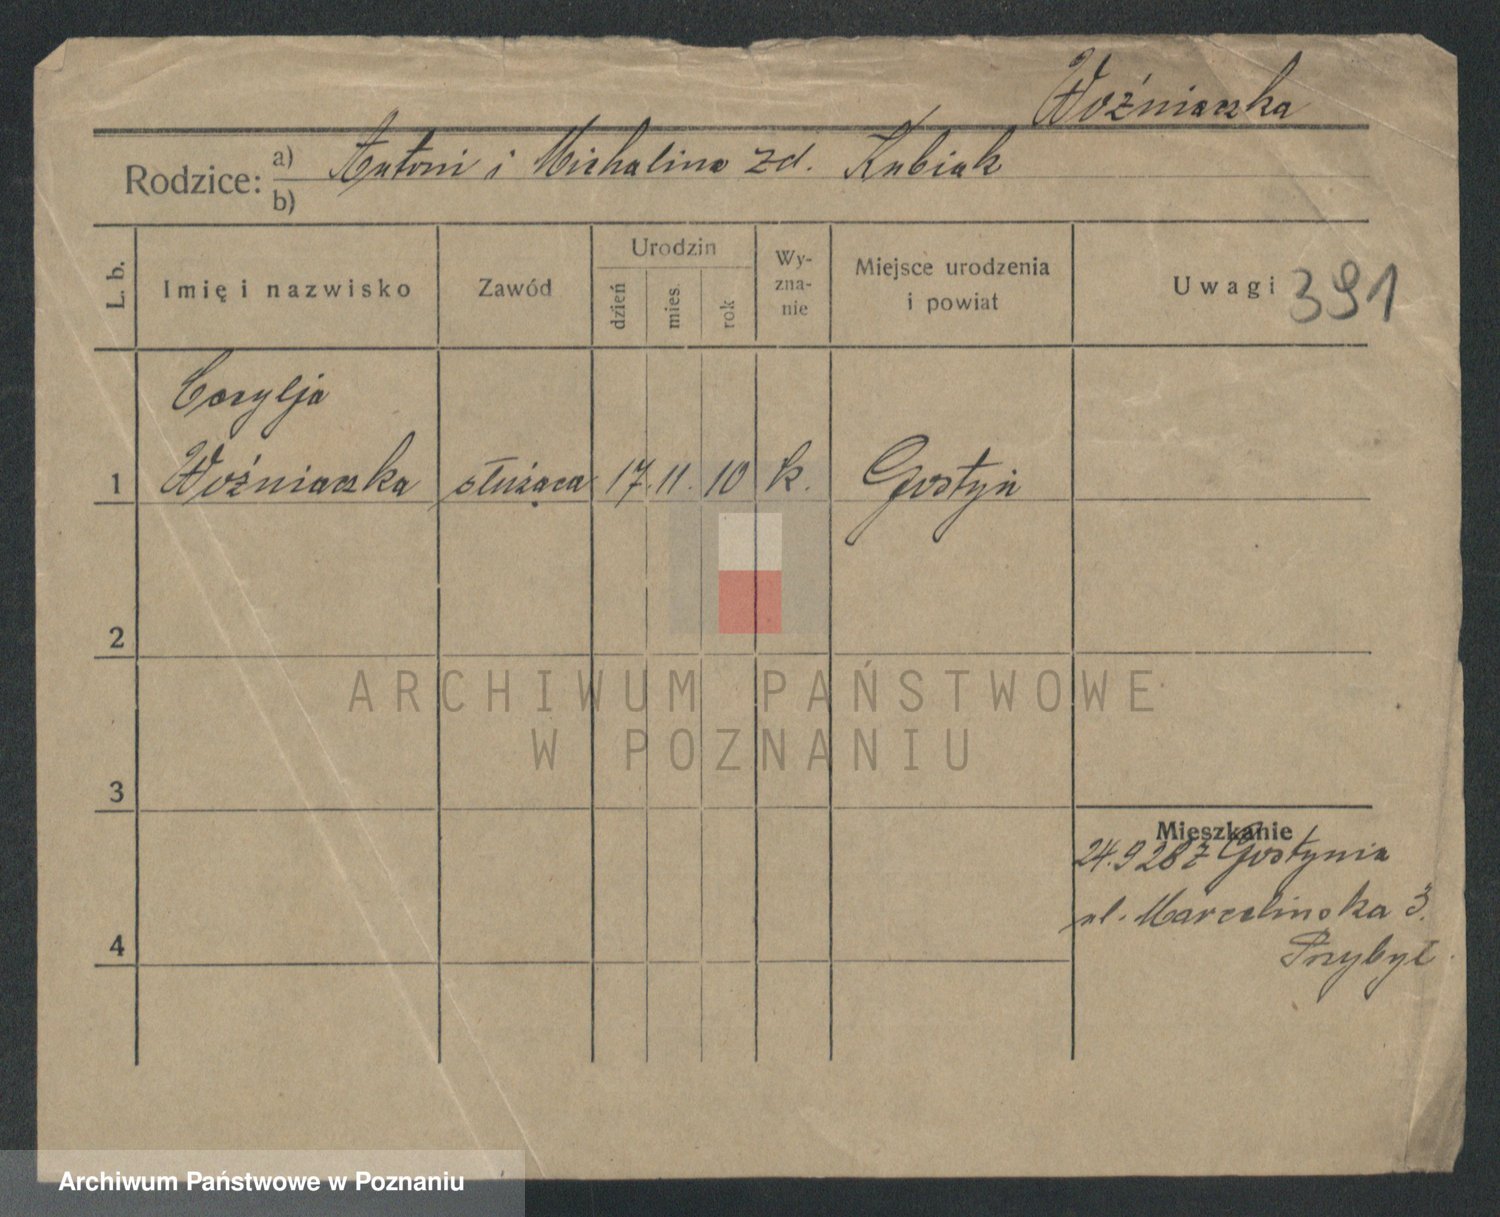 Woźniaczka
Rodzice: a) Antoni i Michalina zd. Kubiak
b)
L. b.
Imię i nazwisko
Zawód
Urodzin
dzień
mies.
rok
Wy-
zna-
nie
Miejsce urodzenia
i powiat
Uwagi 391
Cecylja
1 Woźniaczka służąca 17. 11. 10 k. Gostyń
2
ARCHIWUM PAŃSTWOWE
W POZNANIU
3
Mieszkanie
24.9 28 z Gostynia
ul. Marcelinska 3.
4
Przybył.
Archiwum Państwowe w Poznaniu